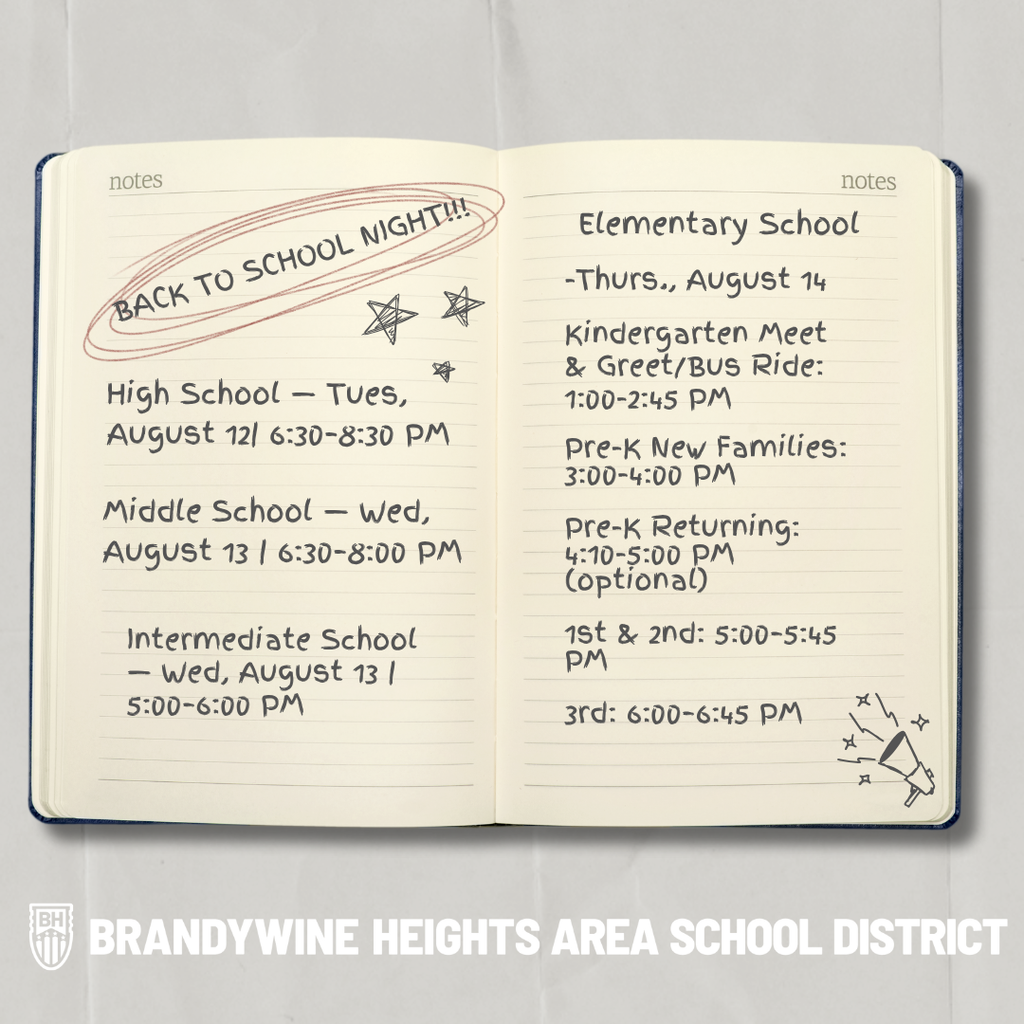 notes
BACK TO SCHOOL NIGHT!!!
High School – Tues,
August 12| 6:30-8:30 PM
Middle School – Wed,
August 13 | 6:30-8:00 PM
Intermediate School
– Wed, August 13 |
5:00-6:00 PM
notes
Elementary School
-Thurs., August 14
Kindergarten Meet
& Greet/Bus Ride:
1:00-2:45 PM
Pre-K New Families:
3:00-4:00 PM
Pre-K Returning:
4:10-5:00 PM
(optional)
1st & 2nd: 5:00-5:45
PM
3rd: 6:00-6:45 PM
BH
BRANDYWINE HEIGHTS AREA SCHOOL DISTRICT